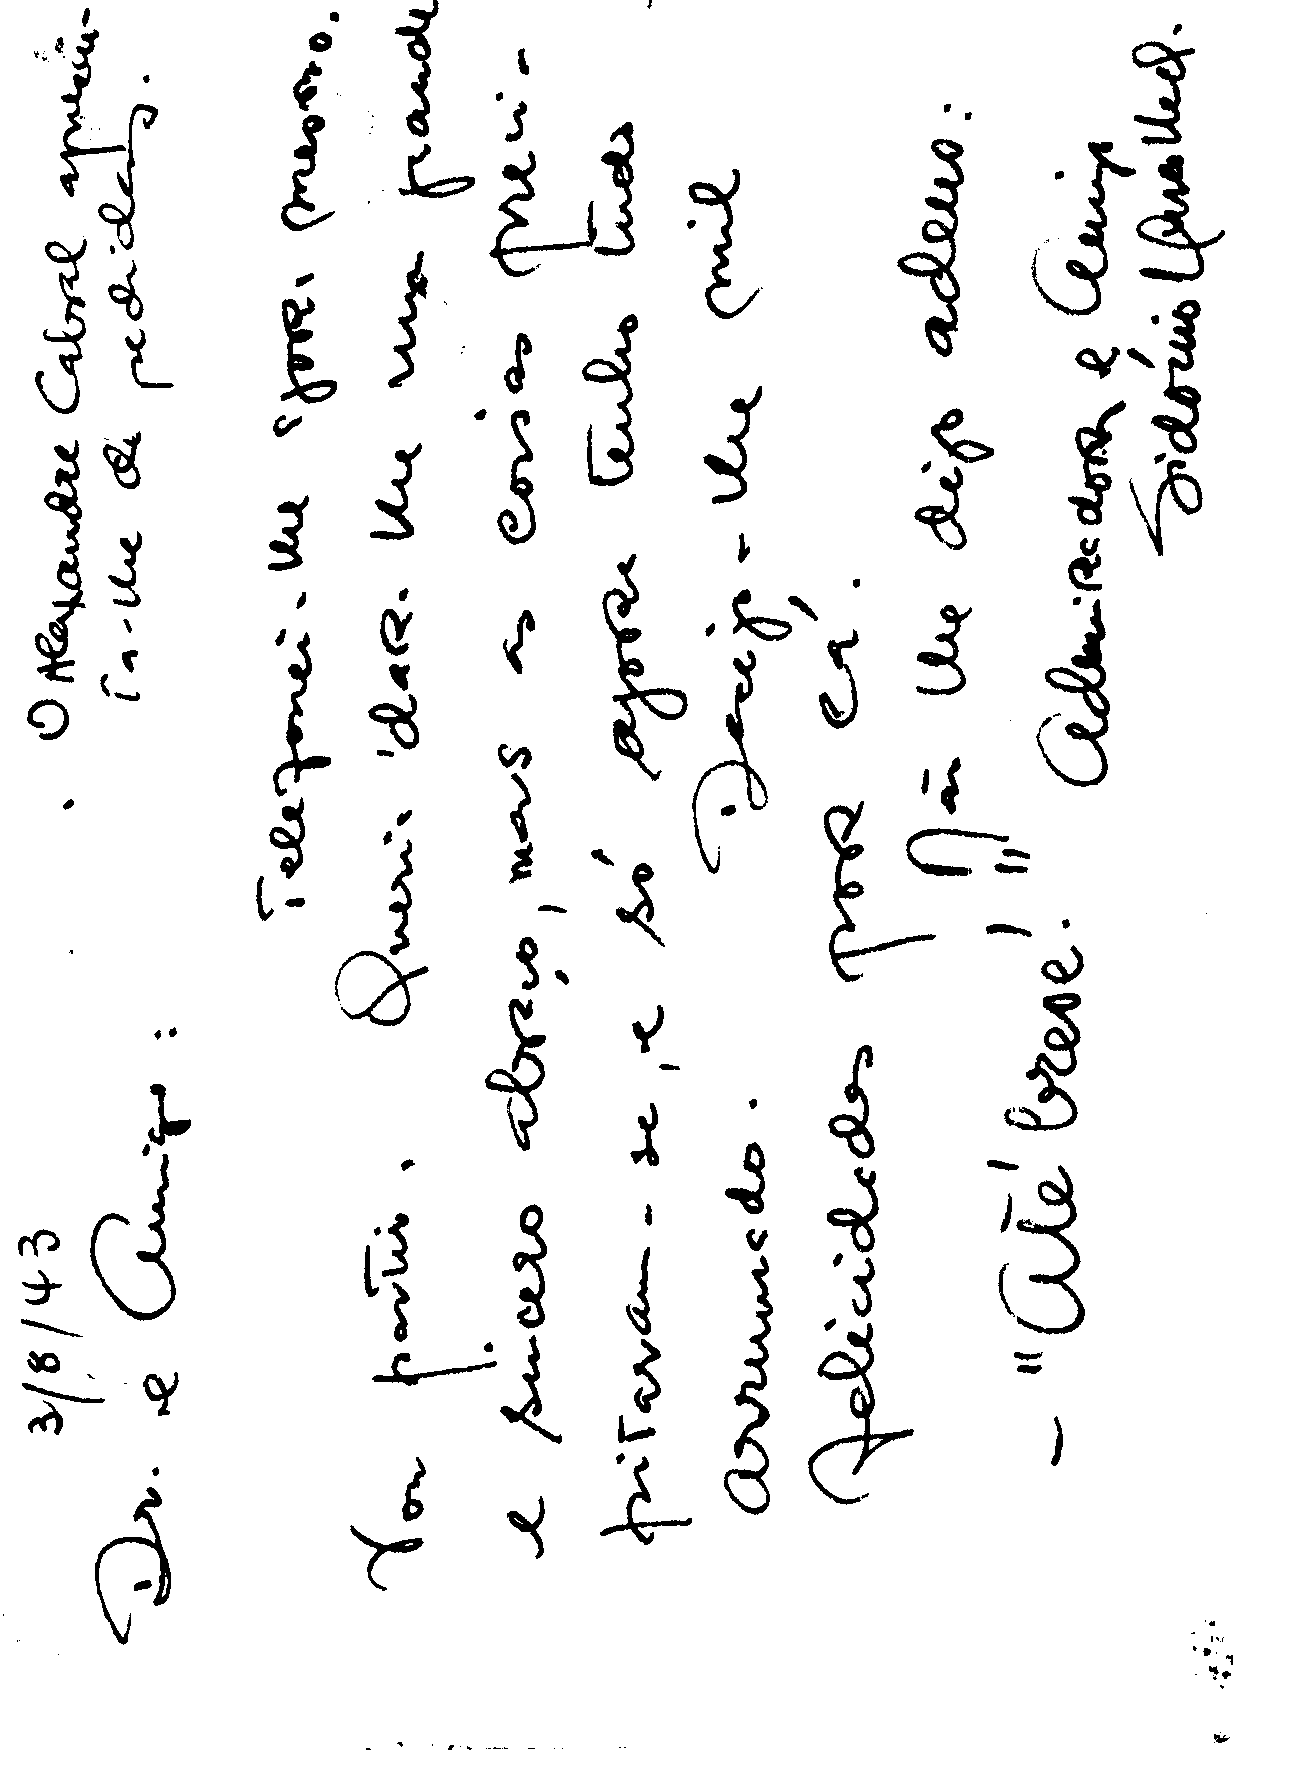 3/8/43
O Alexandre Cabral apresen-
ta-lhe despedidas.
Dr. e Amigo:
Telefonei-lhe 'gora mesmo.
Vou partir. Queria dar-lhe um grande
e sincero abraço, mas as coisas preci-
pitaram-se, e só agora tenho tudo
arrumado. Desejo-lhe mil
felicidades por cá.
Não lhe digo adeus:
- "Até breve!"
Admirador e Amigo
Sidónio Muralha.